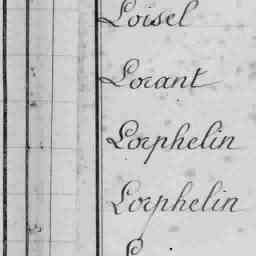 Loisel
Lorant
Lorphelin
Lorphelin
L